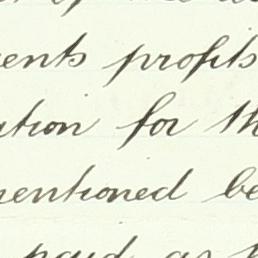 ents profits
ation for th
mentioned be
paid as t